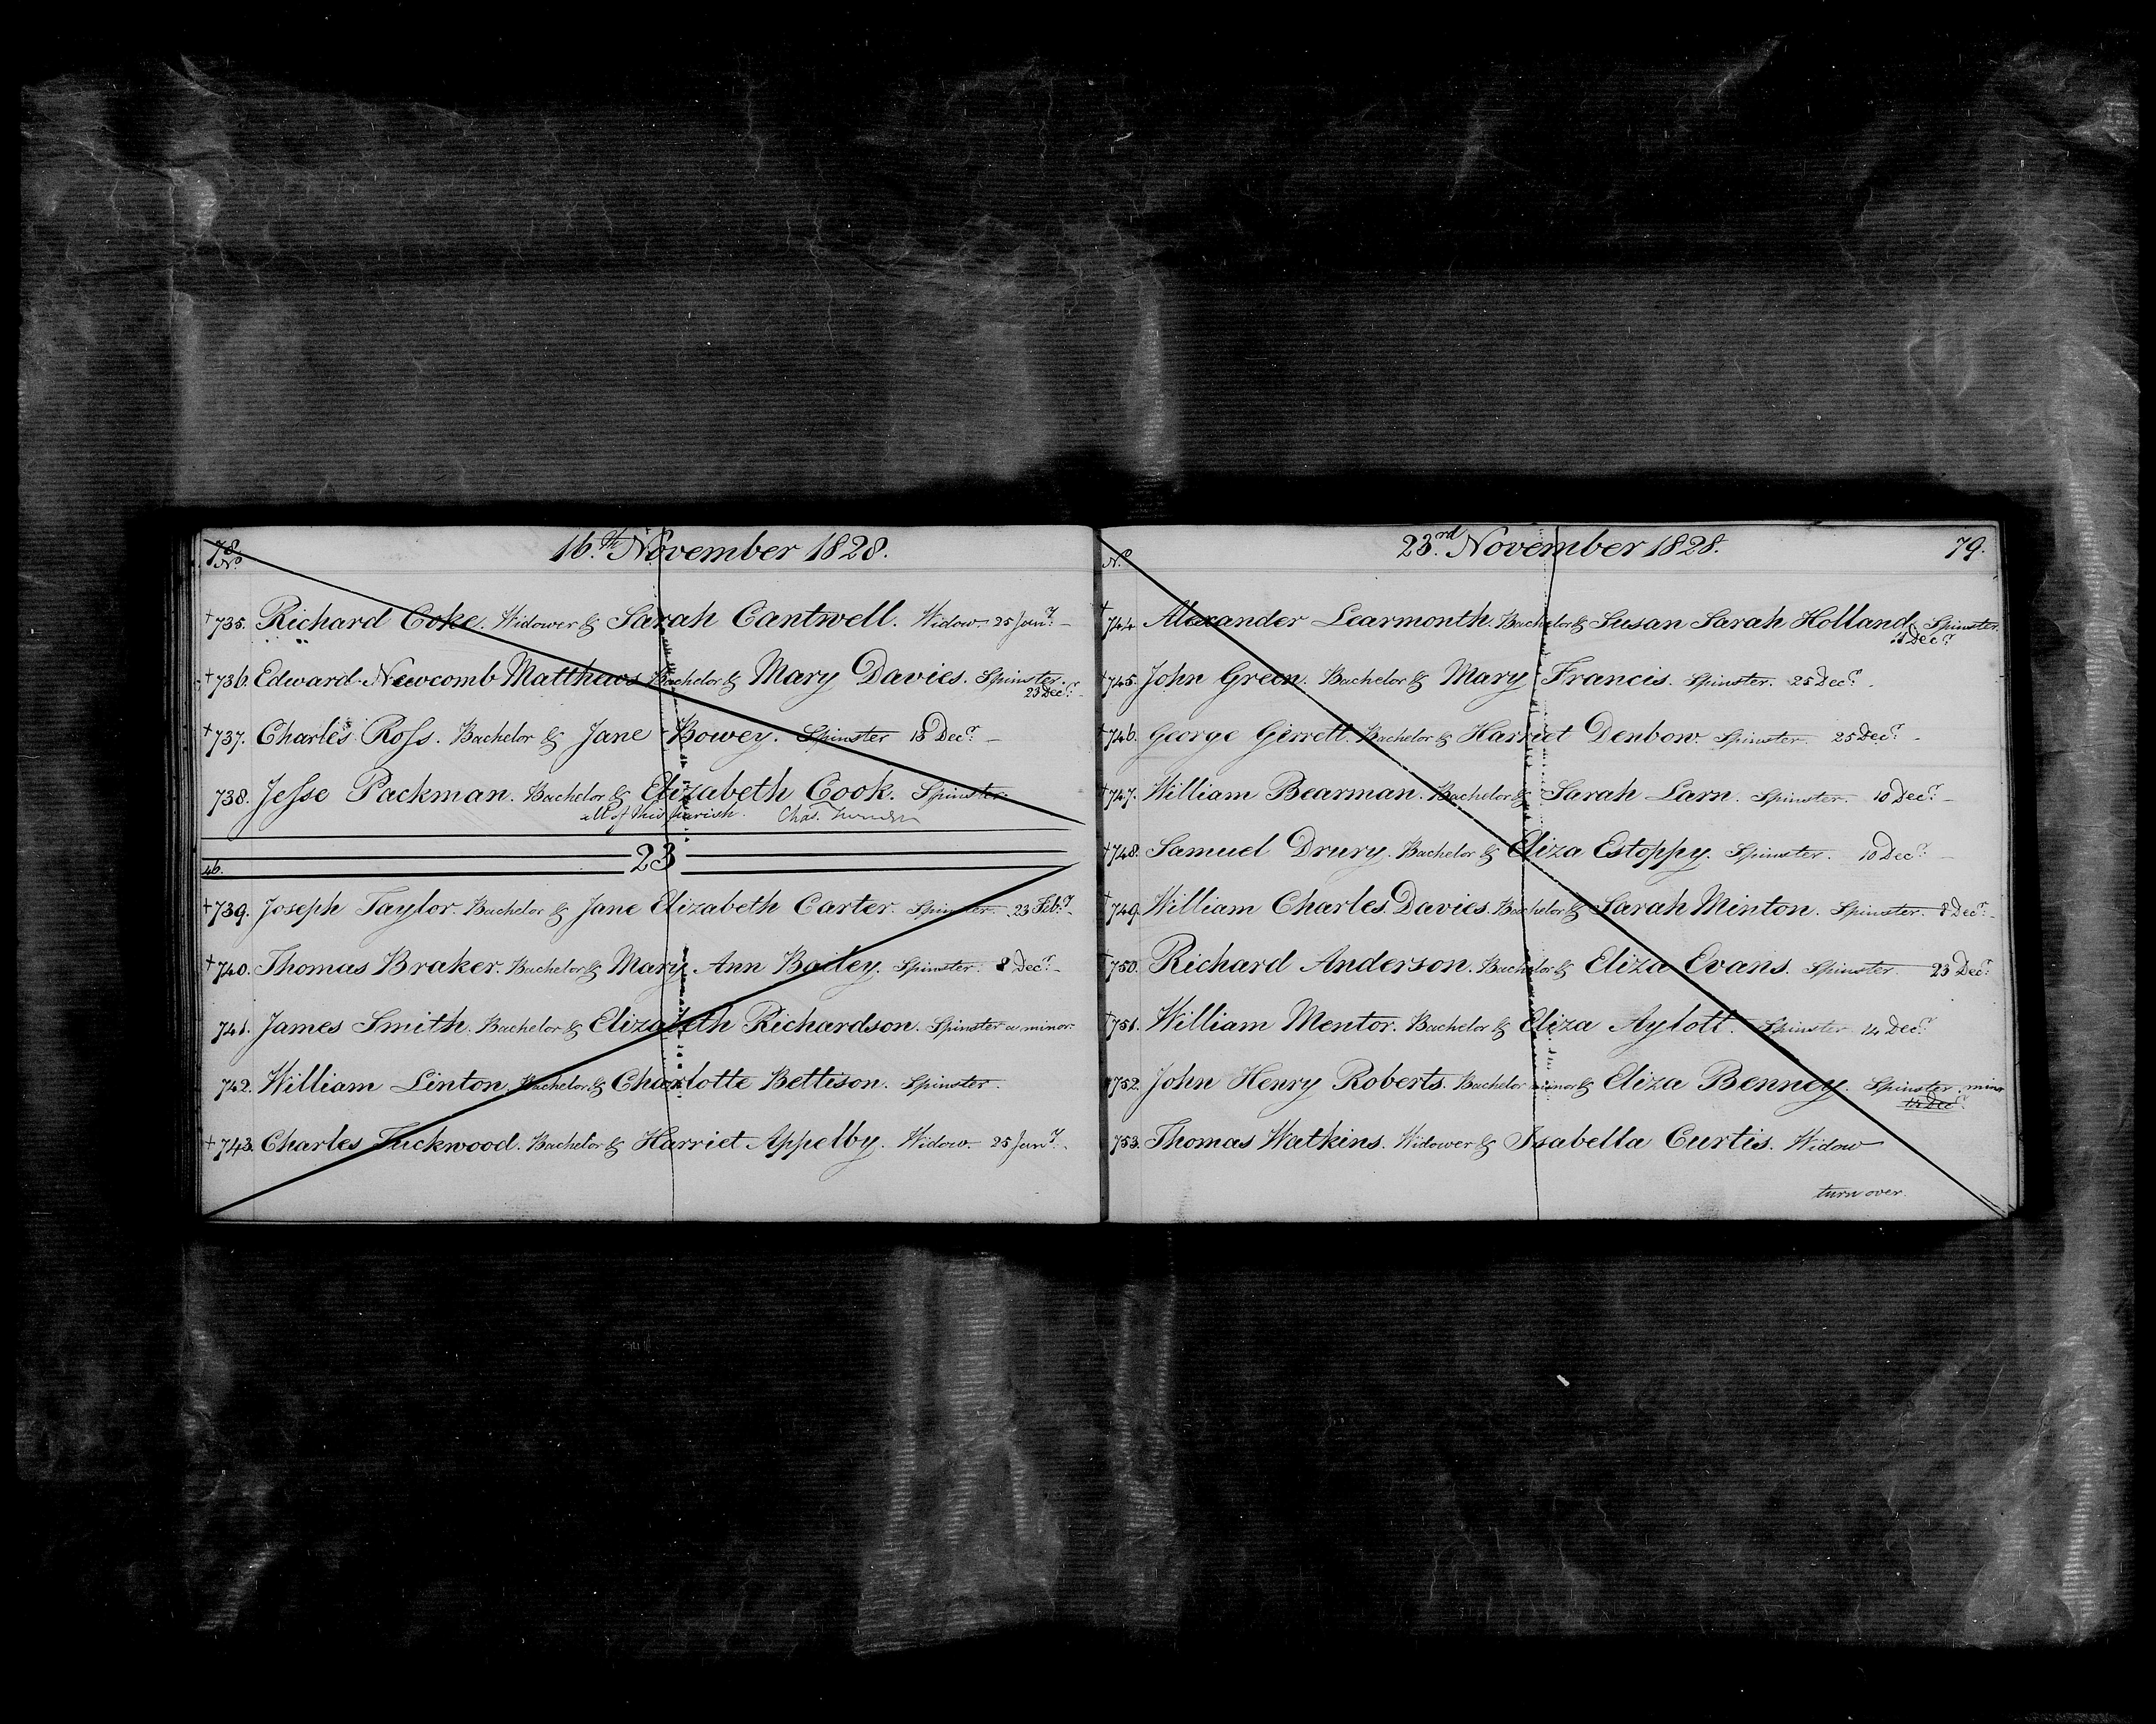 78.
16.th November 1828.
No.
+ 735. Richard Coke. Widower & Sarah Cantwell. Widow 25 Jany.
+ 736. Edward Newcomb Matthews Bachelor & Mary Davies. Spinster.
23 Decr.
+ 737. Charles Ross. Bachelor & Jane Bowey. Spinster 18 Decr.
738. Jesse Packman. Bachelor & Elizabeth Cook. Spinster
all of this parish. Chas.
46.
23
+ 739. Joseph Taylor. Bachelor & Jane Elizabeth Carter. Spinster. 23 Feby.
+ 740. Thomas Braker. Bachelor & Mary Ann Bailey. Spinster. 8 Decr.
741. James Smith. Bachelor & Elizabeth Richardson. Spinster a minor.
742. William Linton. Bachelor & Charlotte Bettison. Spinster.
+ 743. Charles Tuckwood. Bachelor & Harriet Appelby. Widow 25 Jany.
23.rd November 1828.
79.
No.
+ 744. Alexander Learmonth. Bachelor & Susan Sarah Holland. Spinster.
Decr.
+ 745. John Green. Bachelor & Mary Francis. Spinster. 25 Decr.
+ 746. George Girrett. Bachelor & Harriet Denbow. Spinster. 25 Decr.
+ 747. William Bearman. Bachelor & Sarah Larn. Spinster. 10 Decr.
+ 748. Samuel Drury. Bachelor & Eliza Estoppy. Spinster. 10 Decr.
+ 749. William Charles Davies. Bachelor & Sarah Minton. Spinster. 8 Decr.
+ 750. Richard Anderson. Bachelor & Eliza Evans. Spinster. 23 Decr.
+ 751. William Mentor. Bachelor & Eliza Aylott. Spinster 14 Decr.
752. John Henry Roberts. Bachelor minor & Eliza Benney. Spinster minor
14 Decr.
753. Thomas Watkins. Widower & Isabella Curtis. Widow
turn over.